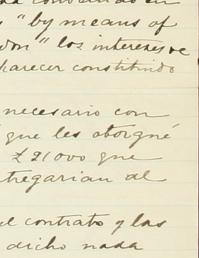 "by means of
don" los intereses
parecer constituido
necesario con
que les otorgué
£21000 que
tregarian al
el contrato y las
dicho nada